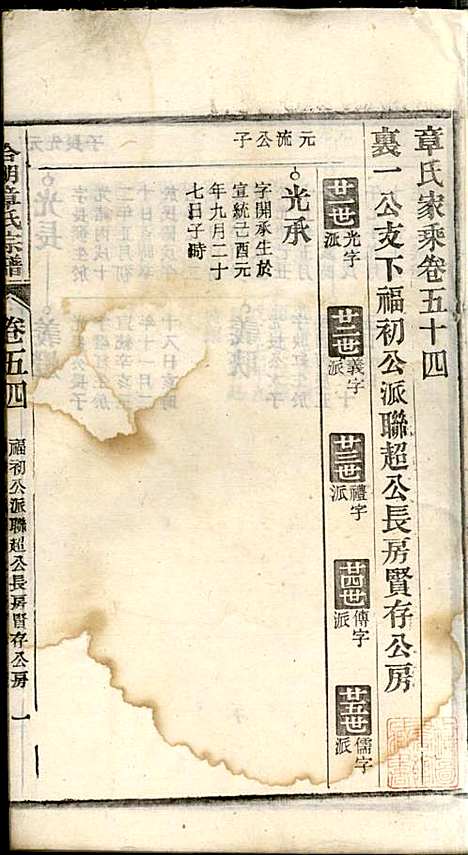 章氏家乘卷五十四
裏一公支下福初公派聯超公長房賢存公房
廿一世光字派
廿二世義字派
廿三世禮字派
廿四世傳字派
廿五世儒字派
元流公子
光承
字開承生於
宣統己酉元
年九月二十
七日子時
章氏宗譜
卷五四
福初公派聯超公長房賢存公房
一